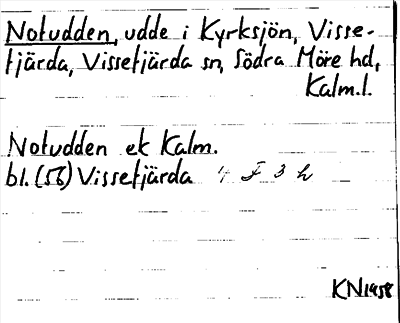 Notudden, udde i Kyrksjön, Visse-
fjärda, Vissefjärda sn, Södra Möre hd,
Kalm.l.
Notudden ek Kalm.
bl. (56) Vissefjärda 4 F 3 h
KN 1958